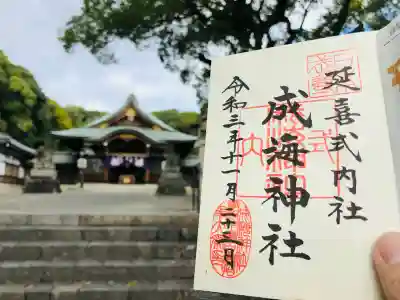 延喜式内社
成海神社
令和三年十一月二十三日